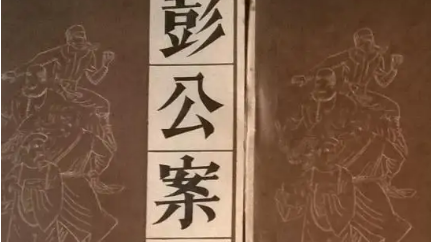 彭公案